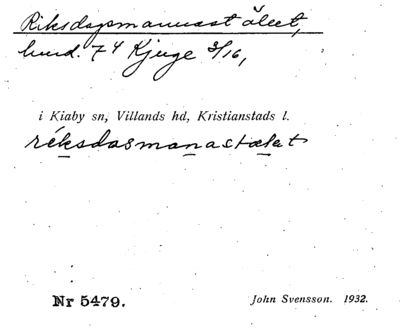 Riksdagsmannastället,
hmd. 7⁴ Kjuge 3/16,
i Kiaby sn, Villands hd, Kristianstads l.
réksdasmanastælet
Nr 5479.
John Svensson. 1932.